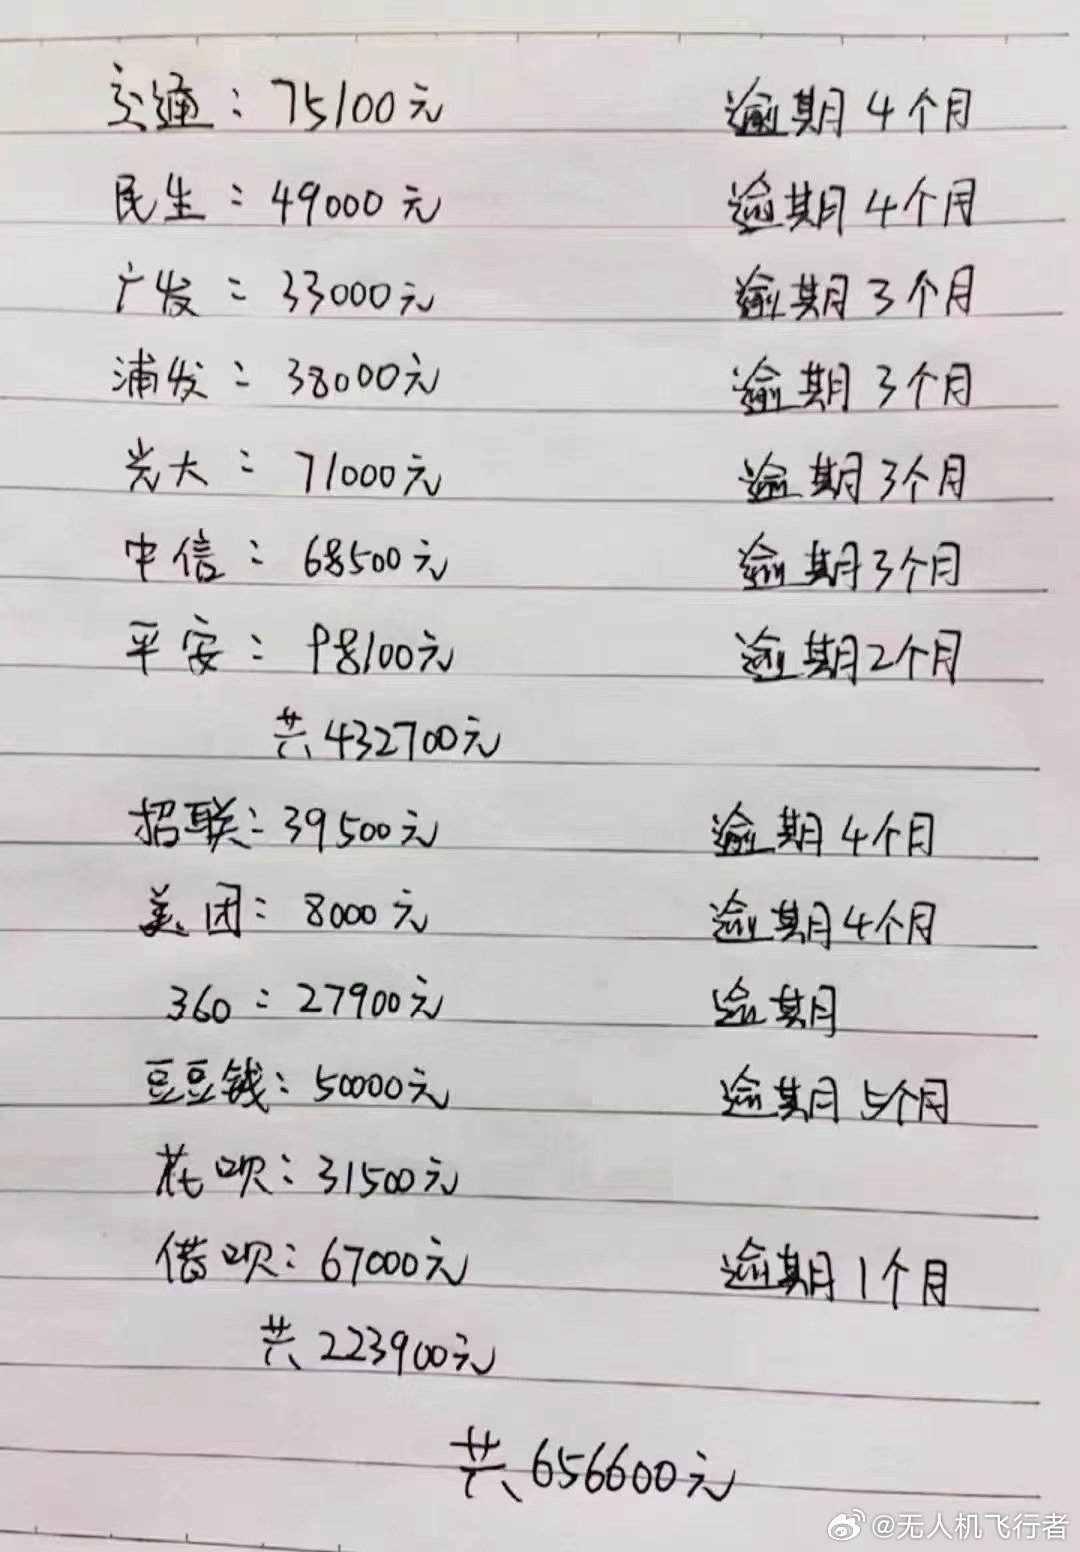 交通：75100元 逾期4个月
民生：49000元 逾期4个月
广发：33000元 逾期3个月
浦发：38000元 逾期3个月
光大：71000元 逾期3个月
中信：68500元 逾期3个月
平安：98100元 逾期2个月
共432700元
招联：39500元 逾期4个月
美团：8000元 逾期4个月
360：27900元 逾期
豆豆钱：50000元 逾期5个月
花呗：31500元
借呗：67000元 逾期1个月
共223900元
共656600元
@无人机飞行者